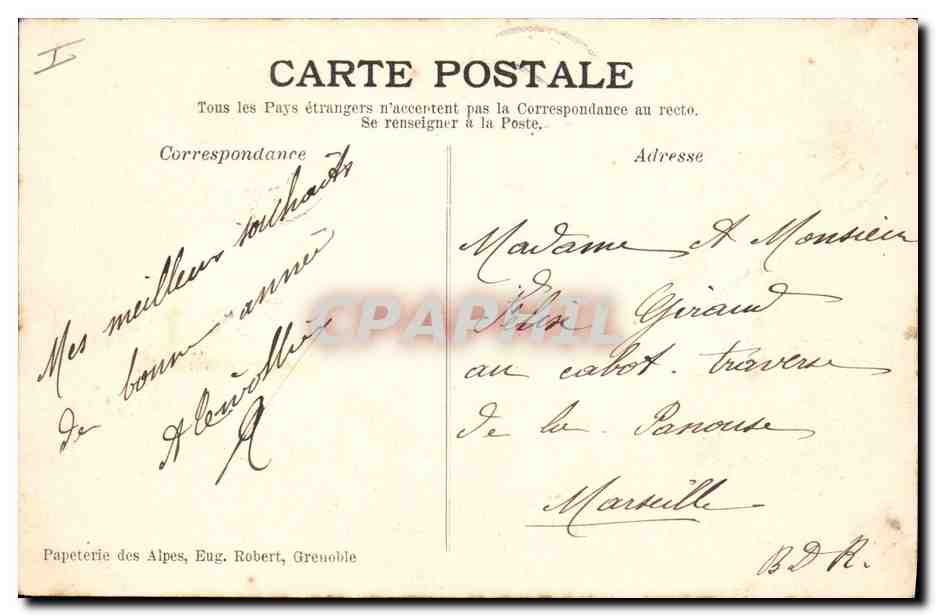 I
CARTE POSTALE
Tous les Pays étrangers n'acceptent pas la Correspondance au recto.
Se renseigner à la Poste.
Correspondance
Mes meilleurs souhaits
de bonne année
Adresse
Madame A Monsieur
Félix Giraud
au cabot. traverse
de la Panouse
Marseille
BDR.
Papeterie des Alpes, Eug. Robert, Grenoble
CPAPHIL